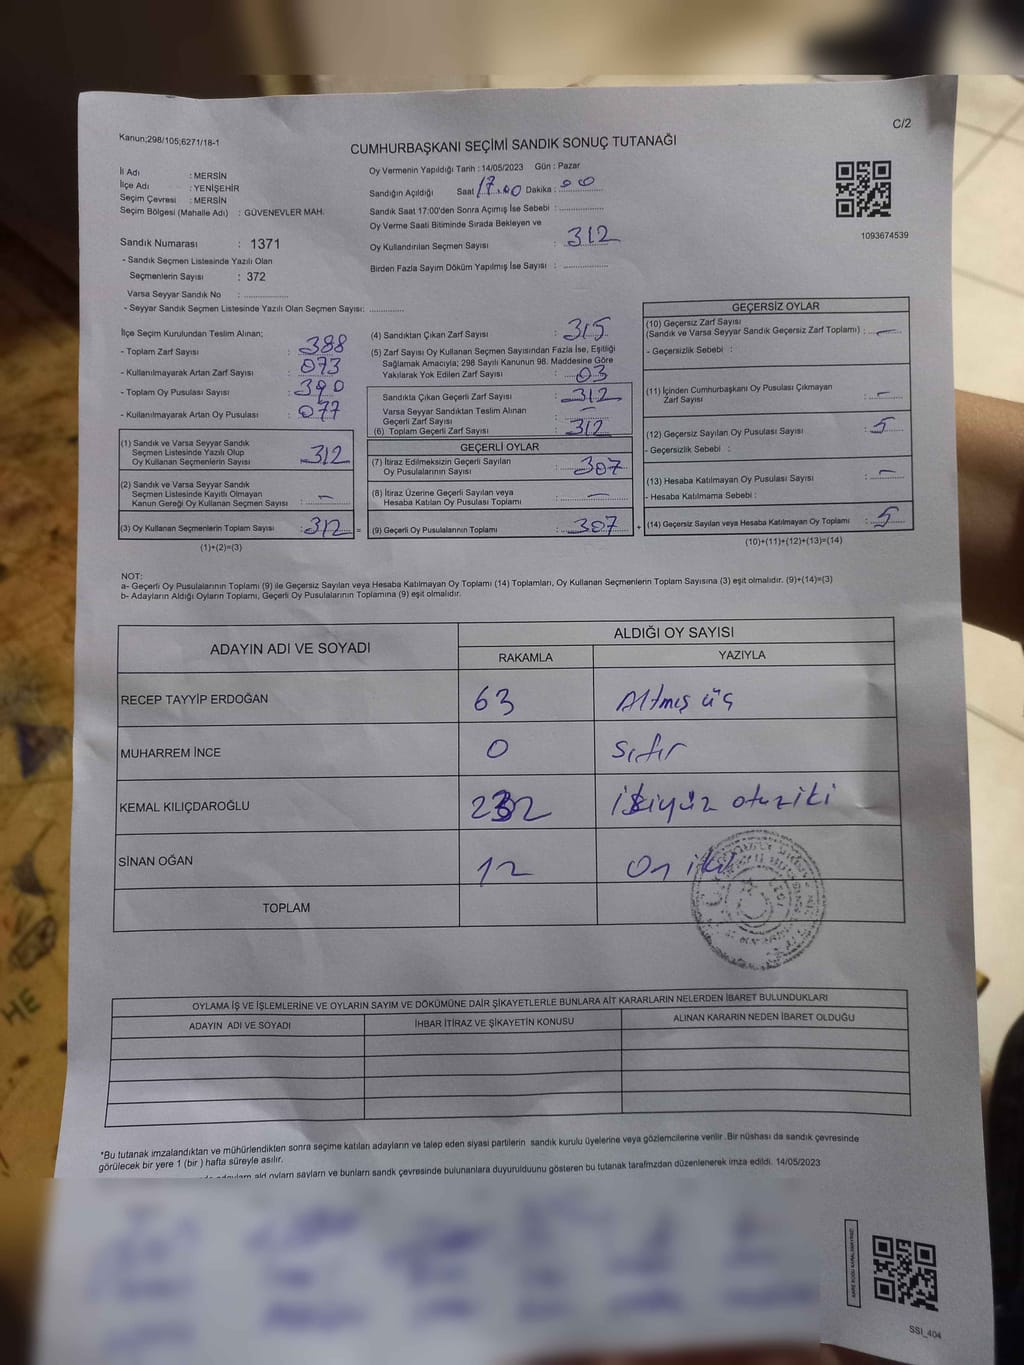 C/2
Kanun;298/105;6271/18-1
CUMHURBAŞKANI SEÇİMİ SANDIK SONUÇ TUTANAĞI
İl Adı : MERSİN
İlçe Adı : YENİŞEHİR
Seçim Çevresi : MERSİN
Seçim Bölgesi (Mahalle Adı) : GÜVENEVLER MAH.
Sandık Numarası : 1371
- Sandık Seçmen Listesinde Yazılı Olan
Seçmenlerin Sayısı : 372
Varsa Seyyar Sandık No : ..................
- Seyyar Sandık Seçmen Listesinde Yazılı Olan Seçmen Sayısı: ..............
Oy Vermenin Yapıldığı Tarih : 14/05/2023 Gün : Pazar
Sandığın Açıldığı Saat 17.00 Dakika : 00
Sandık Saat 17:00'den Sonra Açımış İse Sebebi : ..................
Oy Verme Saati Bitiminde Sırada Bekleyen ve
Oy Kullandırılan Seçmen Sayısı : 312
Birden Fazla Sayım Döküm Yapılmış İse Sayısı : ..................
1093674539
İlçe Seçim Kurulundan Teslim Alınan;
- Toplam Zarf Sayısı : 388
- Kullanılmayarak Artan Zarf Sayısı : 073
- Toplam Oy Pusulası Sayısı : 390
- Kullanılmayarak Artan Oy Pusulası : 077
(1) Sandık ve Varsa Seyyar Sandık
Seçmen Listesinde Yazılı Olup
Oy Kullanan Seçmenlerin Sayısı 312
(2) Sandık ve Varsa Seyyar Sandık
Seçmen Listesinde Kayıtlı Olmayan
Kanun Gereği Oy Kullanan Seçmen Sayısı : -
(3) Oy Kullanan Seçmenlerin Toplam Sayısı : 312 =
(1)+(2)=(3)
(4) Sandıktan Çıkan Zarf Sayısı : 315
(5) Zarf Sayısı Oy Kullanan Seçmen Sayısından Fazla İse, Eşitliği
Sağlamak Amacıyla; 298 Sayılı Kanunun 98. Maddesine Göre
Yakılarak Yok Edilen Zarf Sayısı : 03
Sandıkta Çıkan Geçerli Zarf Sayısı : 312
Varsa Seyyar Sandıktan Teslim Alınan
Geçerli Zarf Sayısı : -
(6) Toplam Geçerli Zarf Sayısı : 312
GEÇERLİ OYLAR
(7) İtiraz Edilmeksizin Geçerli Sayılan
Oy Pusulalarının Sayısı : 307
(8) İtiraz Üzerine Geçerli Sayılan veya
Hesaba Katılan Oy Pusulası Toplamı : -
(9) Geçerli Oy Pusulalarının Toplamı : 307 +
GEÇERSİZ OYLAR
(10) Geçersiz Zarf Sayısı
(Sandık ve Varsa Seyyar Sandık Geçersiz Zarf Toplamı) : -
- Geçersizlik Sebebi :
(11) İçinden Cumhurbaşkanı Oy Pusulası Çıkmayan
Zarf Sayısı : -
(12) Geçersiz Sayılan Oy Pusulası Sayısı : 5
- Geçersizlik Sebebi :
(13) Hesaba Katılmayan Oy Pusulası Sayısı : -
- Hesaba Katılmama Sebebi :
(14) Geçersiz Sayılan veya Hesaba Katılmayan Oy Toplamı : 5
(10)+(11)+(12)+(13)=(14)
NOT:
a- Geçerli Oy Pusulalarının Toplamı (9) ile Geçersiz Sayılan veya Hesaba Katılmayan Oy Toplamı (14) Toplamları, Oy Kullanan Seçmenlerin Toplam Sayısına (3) eşit olmalıdır. (9)+(14)=(3)
b- Adayların Aldığı Oyların Toplamı, Geçerli Oy Pusulalarının Toplamına (9) eşit olmalıdır.
ADAYIN ADI VE SOYADI
ALDIĞI OY SAYISI
RAKAMLA YAZIYLA
RECEP TAYYİP ERDOĞAN 63 Altmış üç
MUHARREM İNCE 0 Sıfır
KEMAL KILIÇDAROĞLU 232 ikiyüz otuziki
SİNAN OĞAN 12 On iki
TOPLAM
OYLAMA İŞ VE İŞLEMLERİNE VE OYLARIN SAYIM VE DÖKÜMÜNE DAİR ŞİKAYETLERLE BUNLARA AİT KARARLARIN NELERDEN İBARET BULUNDUKLARI
ADAYIN ADI VE SOYADI İHBAR İTİRAZ VE ŞİKAYETİN KONUSU ALINAN KARARIN NEDEN İBARET OLDUĞU
*Bu tutanak imzalandıktan ve mühürlendikten sonra seçime katılan adayların ve talep eden siyasi partilerin sandık kurulu üyelerine veya gözlemcilerine verilir .Bir nüshası da sandık çevresinde
görülecek bir yere 1 (bir ) hafta süreyle asılır.
ald oyların saylarn ve bunların sandk çevresinde bulunanlara duyurulduunu gösteren bu tutanak tarafmzdan düzenlenerek imza edildi. 14/05/2023
SSI_404